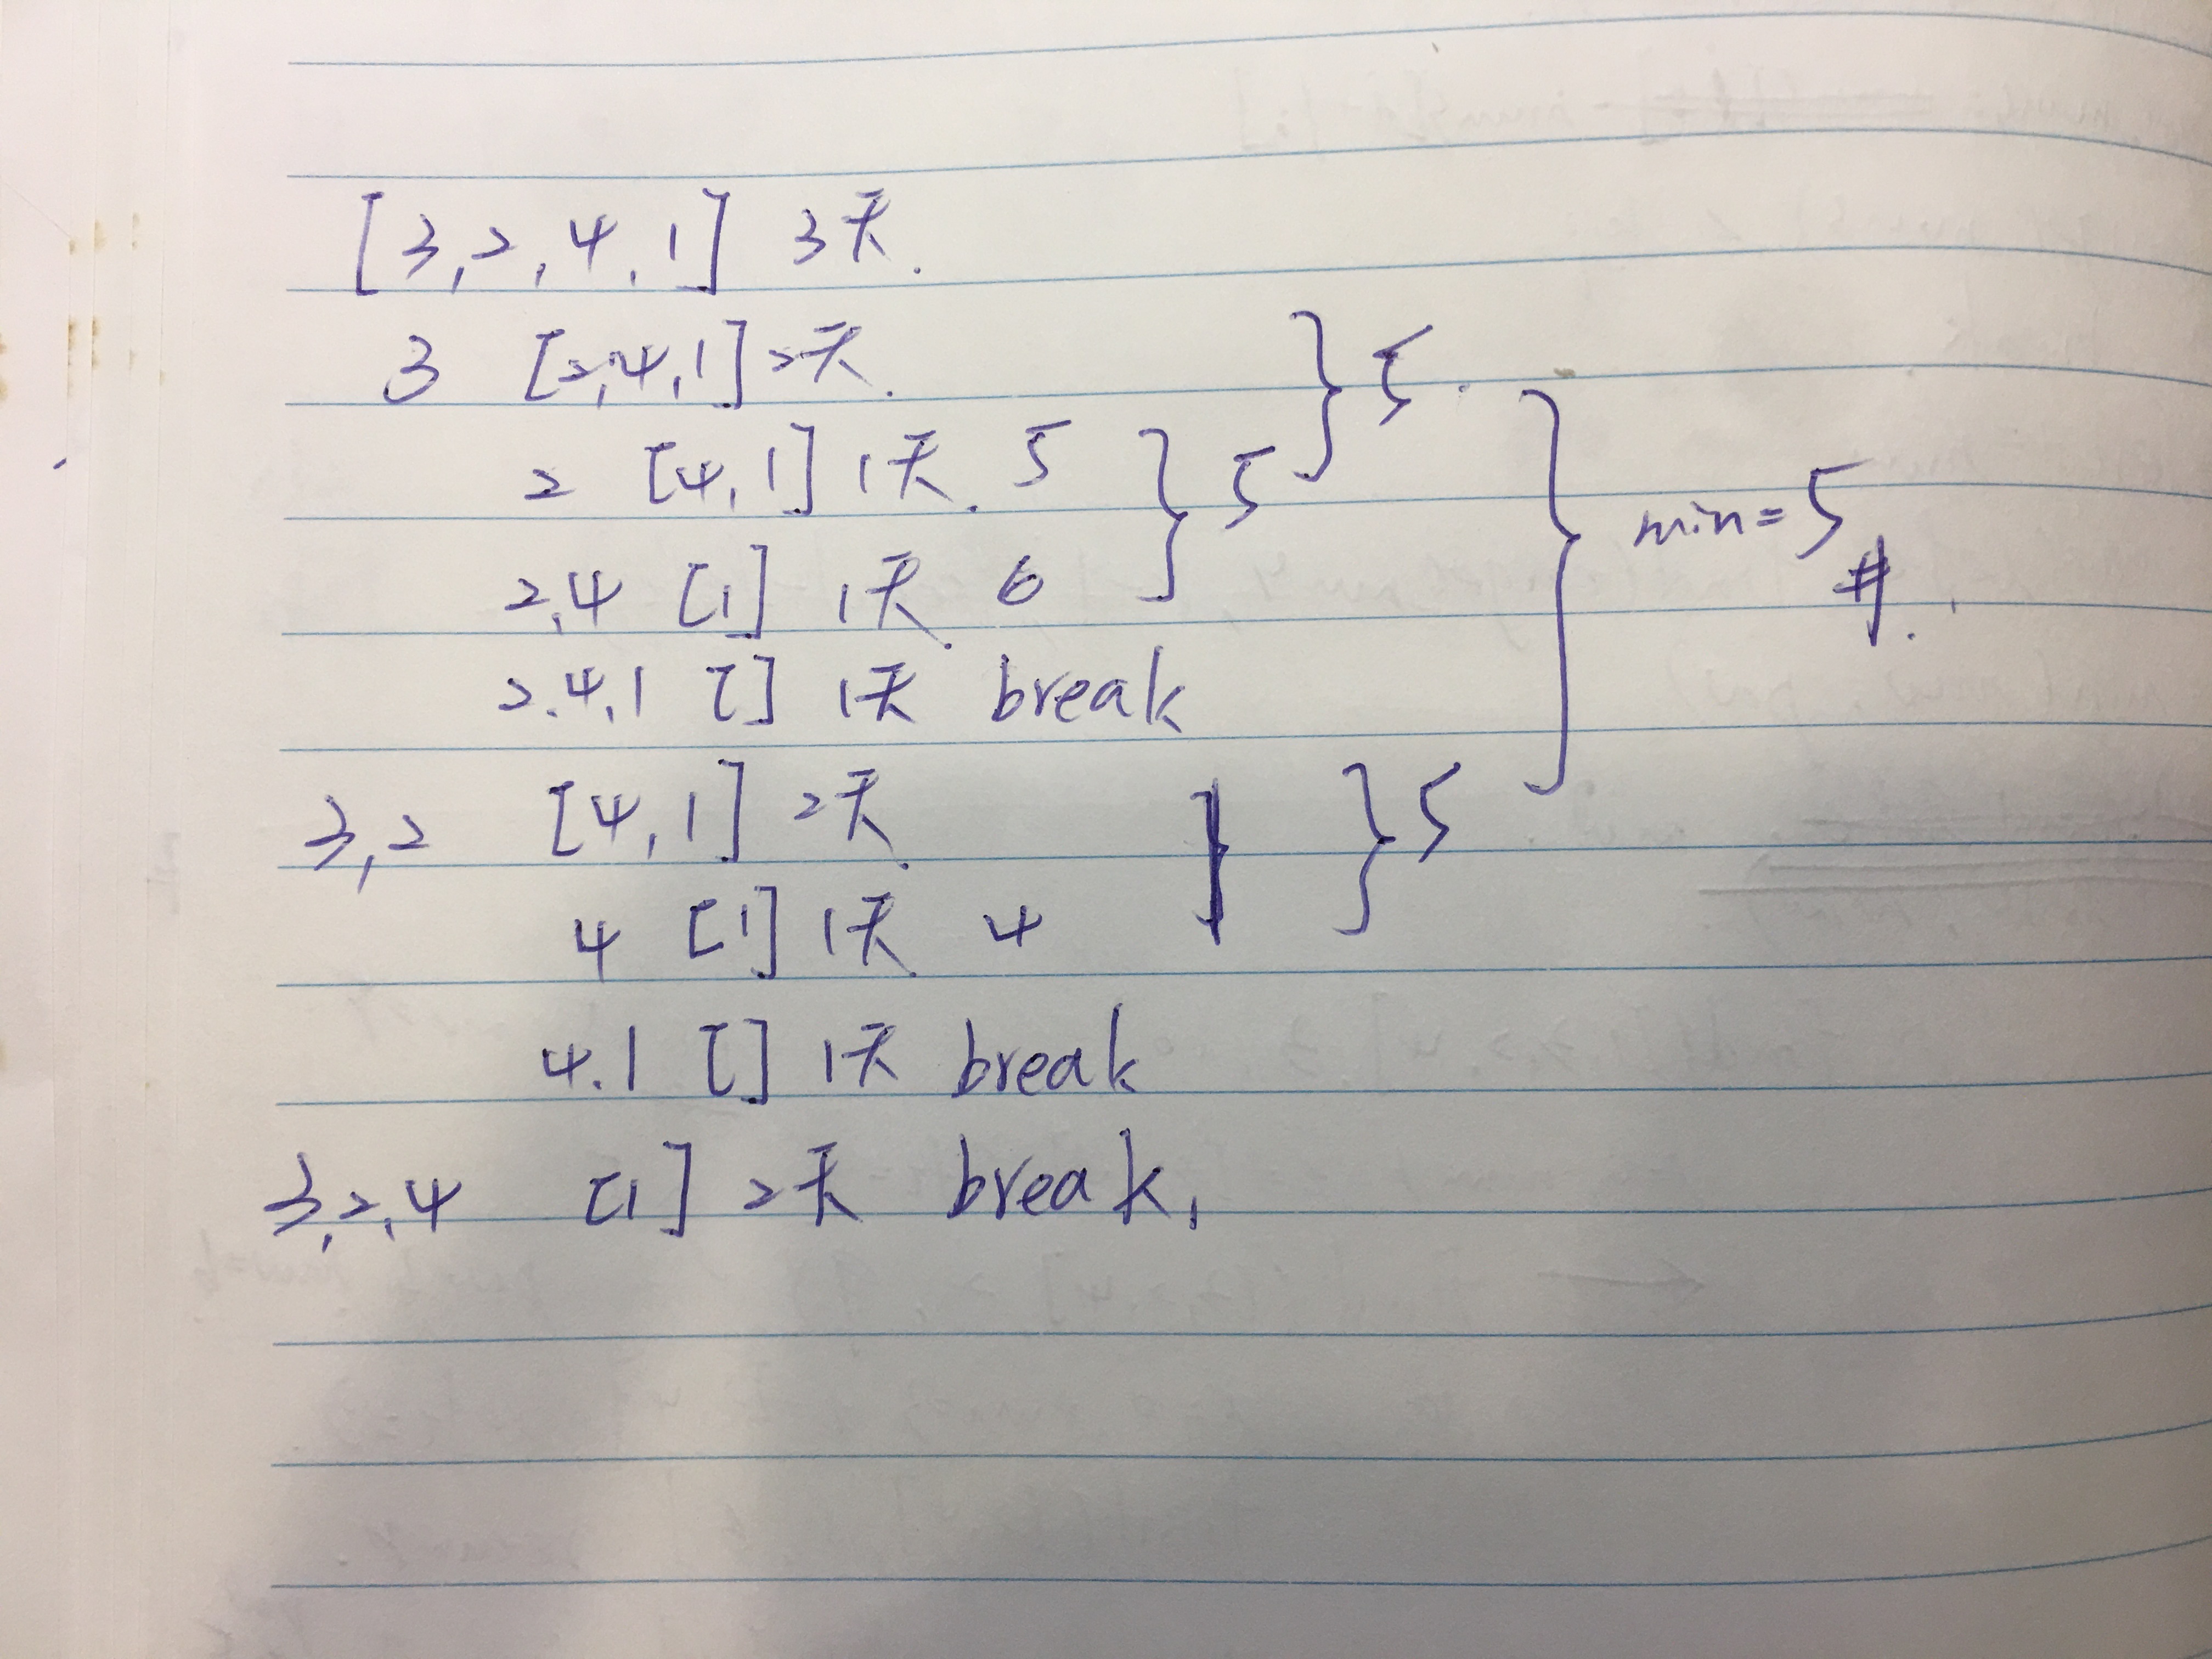 [3,2,4,1] 3天.
3 [2,4,1] 2天. } 5.
2 [4,1] 1天. 5 } 5
2,4 [1] 1天. 6
} min=5 #.
2.4.1 [] 1天 break
3,2 [4,1] 2天. } } 5
4 [1] 1天. 4
4.1 [] 1天 break
3,2,4 [1] 2天 break,